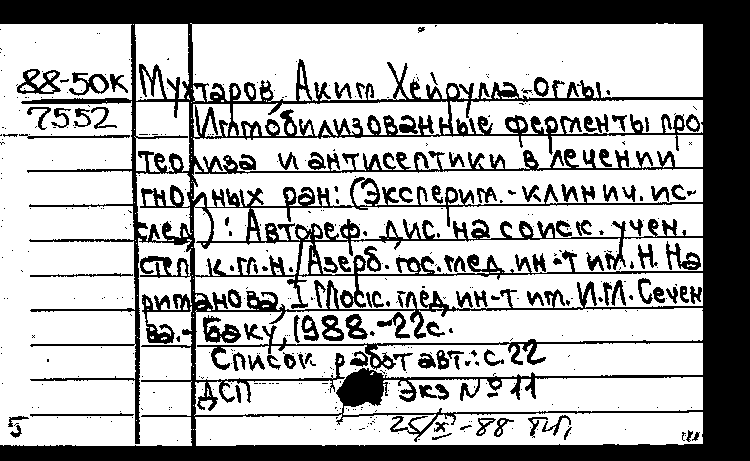 88-50К Мухтаров, Аким Хейрулла-оглы.
7552 Иммобилизованные ферменты про-
теолиза и антисептики в лечении
гнойных ран: (Эксперим.-клинич. ис-
след.) : Автореф. дис. на соиск. учен.
степ к.м.н./Азерб. гос. мед. ин-т им. Н. На
риманова, I Моск. мед. ин-т им. И.М. Сечен
ва.- Баку, 1988.-22с.
Список работ авт.: с.22
ДСП Экз № 11
5 25/X-88